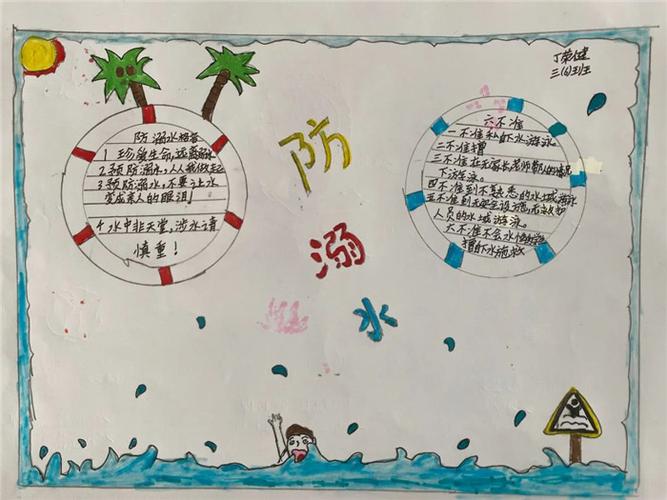 丁荣健
三(6)班
防
溺
水
防溺水标语
1 珍爱生命,远离溺水
2 预防溺水,人人我做起
3 预防溺水,不要让水
变成亲人的眼泪!
4 水中非天堂,涉水请
慎重!
六不准
一不准私下水游泳
二不准擅
三不准在无家长老师带的情况
下游泳。
四不准到不熟悉的水域游泳
五不准到无安全设施,无救
人员的水域游泳。
六不准不会水性
擅下水施救